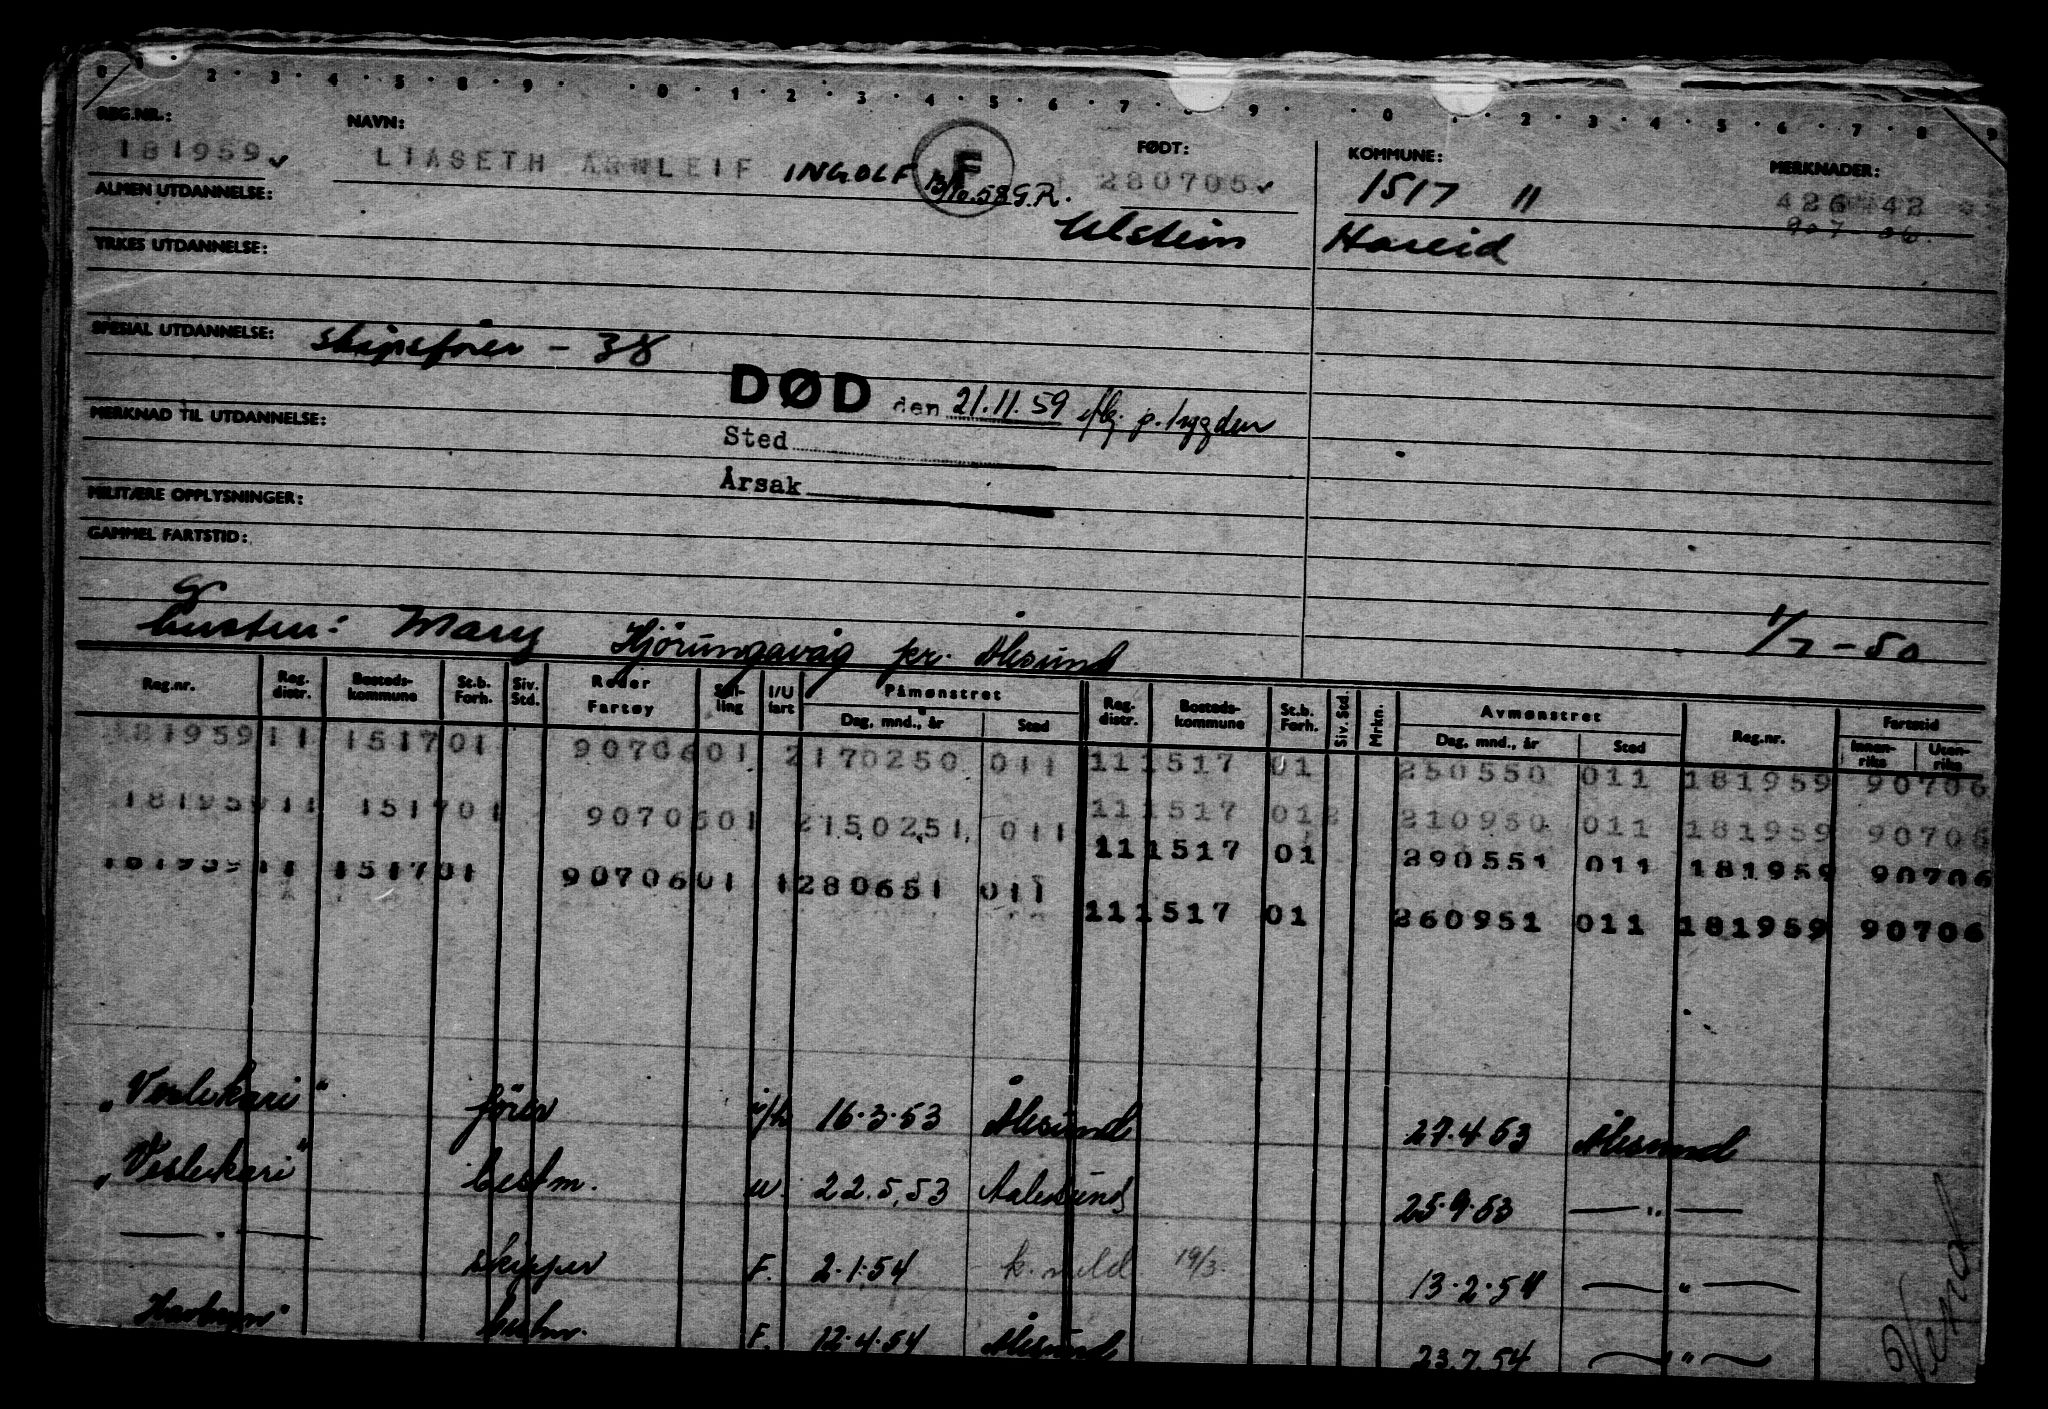 0 1 2 3 4 5 8 9 0 1 2 3 4 5 6 7 9 0 2 3 4 5 6 7 8 9
REG.NR.: NAVN: FØDT: KOMMUNE: MERKNADER:
181959 LIASETH ARNLEIF INGOLF F 13/10.58 G.R. 280705 1517 11 426 42
907 06.
ALMEN UTDANNELSE: Ulstein Hareid
YRKES UTDANNELSE:
SPESIAL UTDANNELSE: skipsfører - 38
DØD den 21.11.59 p. trygden
MERKNAD TIL UTDANNELSE:
Sted
Årsak
MILITÆRE OPPLYSNINGER:
GAMMEL FARTSTID:
G
husten: Mary Hjørungavåg pr. Ålesund 1/7-50
Reg.nr. Reg. distr. Bosteds-kommune St.b. Forh. Siv. Std. Reder Fartøy Stil-ling I/U fart Påmønstret Dag, mnd., år Sted Reg. distr. Bosteds-kommune St.b. Forh. Siv. Std. Mrkn. Avmønstret Dag, mnd., år Sted Reg.nr. Fartstid Innen-riks Uten-riks
181959 11 1517 01 90706 01 2 170250 011 11 1517 01 250550 011 181959 90706
11 1517 01 210950 011 181959 90706
181959 11 1517 01 90706 01 2 150251 011 11 1517 01 290551 011 181959 90706
181959 11 1517 01 90706 01 1 280651 011 11 1517 01 260951 011 181959 90706
"Veslekari" fører 16.3.53 Ålesund 27.4.53 Ålesund
"Veslekari" bestm. u. 22.5.53 Aalesund 25.9.53 — " —
— " — skipper F. 2.1.54 k. meld 19/3. 13.2.54 — " —
F. 12.4.54 Ålesund 23.7.54 — " —